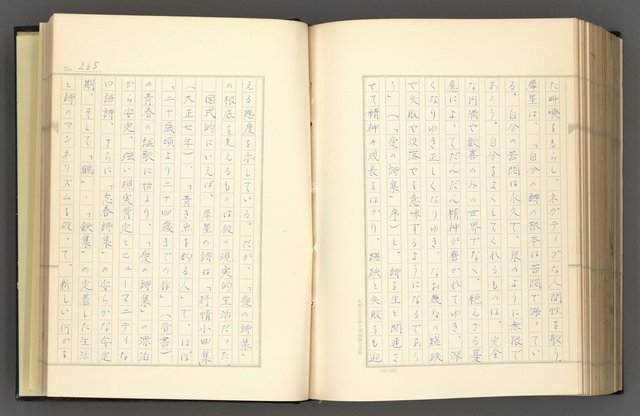 た叫喚をもらし、ネガティブな人間性を歌う。
犀星は、「自分の詩の根本は苦悶で漲ってい
る。自分の苦悶は永久で、泉のように無限で
あろう。自分をよくしてくれるものは、完全
な円満や歓喜のみの世界でなく、絶えざる憂
慮によってだんだん精神が磨かれてゆき、深
くなりゆき正しくなりゆき、なお幾多の蹉跌
や失敗や没落やを意味するようになるであろ
う」（「愛の詩集」序）と、詩を生と関連さ
せて精神の成長をはかり、蹉跌と失敗をも迎
No. 265
える態度を示している。だが、「愛の詩集」
の根底を支えるものは彼の現実的生活だった。
図式的にいえば、犀星の詩は「抒情小曲集」
（大正七年）、「青き魚を釣る人」で、ほぼ
「二十歳頃より二十四歳までの作」（覚書）
の青春の謳歌に始まり、「愛の詩集」の漂泊
から安定、強い現実肯定とヒューマニティな
口語詩、さらに「忘春詩集」の安らかな安定
期、そして「鶴」・「鉄集」の定着した生活
と詩のマンネリズムを破って、新しい何かを